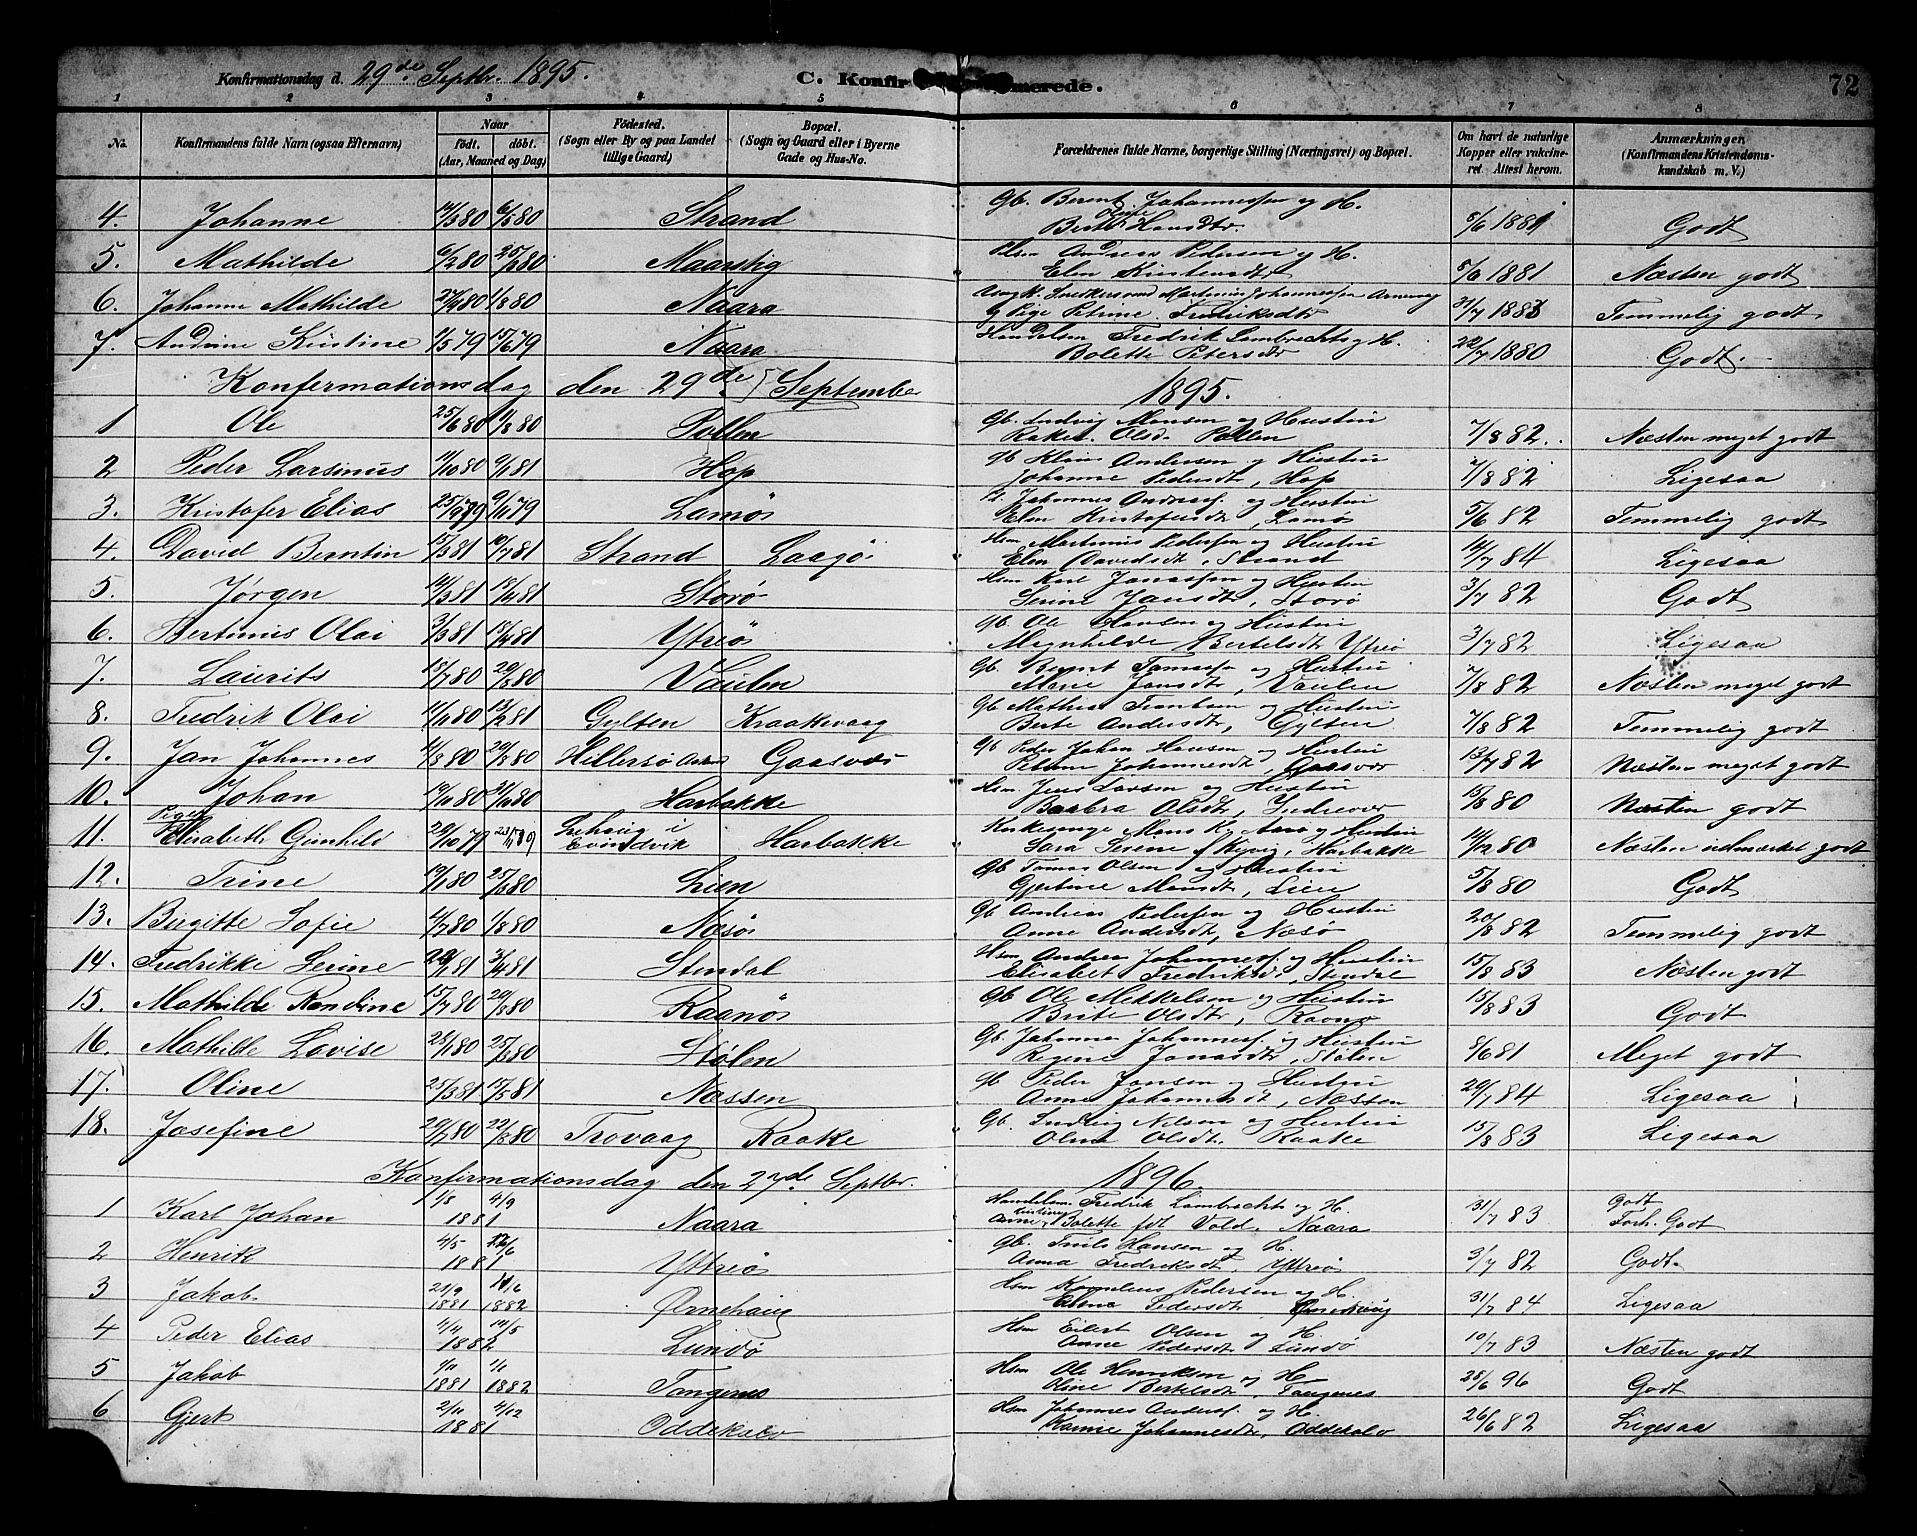 Konfirmationsdag d. 29de Septbr. 1895. C. Konfirmerede. 72
1 2 3 4 5 6 7 8
No. Konfirmandens fulde Navn (ogsaa Efternavn) Naar født. døbt. (Aar, Maaned og Dag) Fødested. (Sogn eller By og paa Landet tillige Gaard) Bopæl. (Sogn og Gaard eller i Byerne Gade og Hus-No. Forældrenes fulde Navne, borgerlige Stilling (Næringsvei) og Bopæl. Om havt de naturlige Kopper eller vakcineret Attest herom. Anmærkninger. (Konfirmandens Kristendomskundskab m. V.)
4. Johanne 14/3 80 6/5 80 Strand Gb. Berent Johannessen og H. Berte Oline Hansdtr 5/6 1881 Godt
5. Mathilde 6/2 80 25/2 80 Maarstig Andreas Pedersen og H. Elen Kristensdtr 5/6 1881 Næsten godt
6. Johanne Mathilde 27/4 80 1/8 80 Naara Martinus Johannessen og Pige Petrine Fredriksdtr 31/7 1883 Temmelig godt
7. Andrine Kristine 11/5 79 15/6 79 Naara Handelsm Fredrik Lambrechts og H. Bolette Petersdtr 22/7 1880 Godt.
Konfermationsdag den 29de September 1895.
1 Ole 25/6 80 1/8 80 Pollen Gb. Ludvig Monsen og Hustru Rakel Olsd. Pollen 7/8 82. Næsten meget godt
2 Peder Larsinus 11/10 80 9/1 81 Hop Gb Klaus Andersen og Hustru Johanne Pedersdt, Hop 7/8 82 Ligesaa
3. Kristofer Elias 25/9 79 9/11 79 Lamøs Johannes Andreass. og Hustru Elen Kristofersdt, Lamøs 5/6 82 Temmelig godt
4. David Berntin 15/3 81 10/7 81 Strand Laagø Hsm Martinus Pedersen og Hustru Elen Davidsdt, Strand 14/7 84 Ligesaa
5. Jørgen 14/3 81 18/4 81 Storø Hsm Karl Jonassen og Hustru Serine Jansdtr, Storø 3/7 82 Godt
6. Bertinus Olai 3/3 81 18/4 81 Ytreø Gb. Ole Hansen og Hustru Magnhilde Bertelsdt Ytreø 3/7 82 Ligesaa
7. Laurits 18/7 80 29/8 80 Vaulen Gb. Bernt Tomassen og Hustru Marie Jansdtr, Vaulen 7/8 82 Næsten meget godt
8. Fredrik Olai 14/11 80 13/2 81 Gylten Kraakevaag Gb Mathias og Hustru Berte Andersdtr, Gylten 7/8 82 Temmelig godt
9. Jan Johannes 11/8 80 29/8 80 Hillersø Gaasvær Gb Peder Johan Hansen og Hustru Petrine Johannesdt, Gaasvær 13/7 82 Næsten meget godt
10. Johan 19/10 80 31/10 80 Harbakke Hsm. Jens Larsen og Hustru Barbra Olsdtr, Indrevær 15/8 80 Næsten godt
11. Pigen Elisabeth Gunhild 29/10 79 23/11 79 i Evindvik Harbakke Kirkesanger Mons Kr. Aarø og Hustru Sara Serene f. Kyvig, Harbakke 14/2 80 Næsten udmærket godt
12. Trine 19/1 80 25/3 80 Lien Gb Tomas Olsen og Hustru Gjertine Monsdt, Lien 5/8 80 Godt
13. Birgitte Sofie 4/7 80 1/8 80 Næsø Gb Andreas Pedersen og Hustru Anne Andersdt, Næsø 20/8 82 Temmelig godt
14. Fredrikke Serine 20/1 81 3/4 81 Stendal Hsm Andrea Johanness. og Hustru Elisabet Fredriksdt, Stendal 15/8 83 Næsten godt
15. Mathilde Randine 15/7 80 29/8 80 Raanøs Gb Ole Mikkelsen og Hustru Brite Olsdtr, Raanø 15/8 83 Godt
16. Mathilde Lovise 28/1 80 25/3 80 Stølen Gb. Johannes Johanness. og Hustru Regine Jonasdtr, Stølen 8/6 81 Meget godt
17. Oline 25/3 81 15/5 81 Næssen Gb Peder Jansen og Hustru Anne Johannesdt, Næssen 29/7 84 Ligesaa
18. Josefine 29/7 80 22/8 80 Trovaag Raake Gb. Ludvig Nilsen og Hustru Oline Olsdtr. Raake 15/8 83 Ligesaa
Konfirmationsdag den 27de Septbr. 1896.
1 Karl Johan 1/8 4/9 1881 Naara Handelsm. Fredrik Lambrechts og H. Anne Kristine Bolette fdt Vold. Naara 31/7 83 Godt Forh. Godt
2 Henrik 4/5 6/6 1881 Ytreø Gb. Hansen og H. Anna Fredriksdt, Ytreø 3/7 82 Godt.
3 Jakob 21/9 1881 11/6 1882 Ørnehaug Hsm Kornelius Pedersen og H. Pedersdt, Ørnehaug 31/7 84 Ligesaa
4 Peder Elias 4/4 14/5 1882 Lundø Hsm Eilert Olsen og H. Anne Pedersdt, Lundø 10/7 83 Næsten godt
5 Jakob 1/11 1881 1/1 1882 Tangenes Hsm Ole Henriksen og H. Oline Bertelsdt, Tangenes 28/6 96 Godt
6 Gjert 2/11 4/12 1881 Oddekalv Hsm Johannes Anderss. og H. Johannesdtr, Oddekalv 26/6 82 Ligesaa